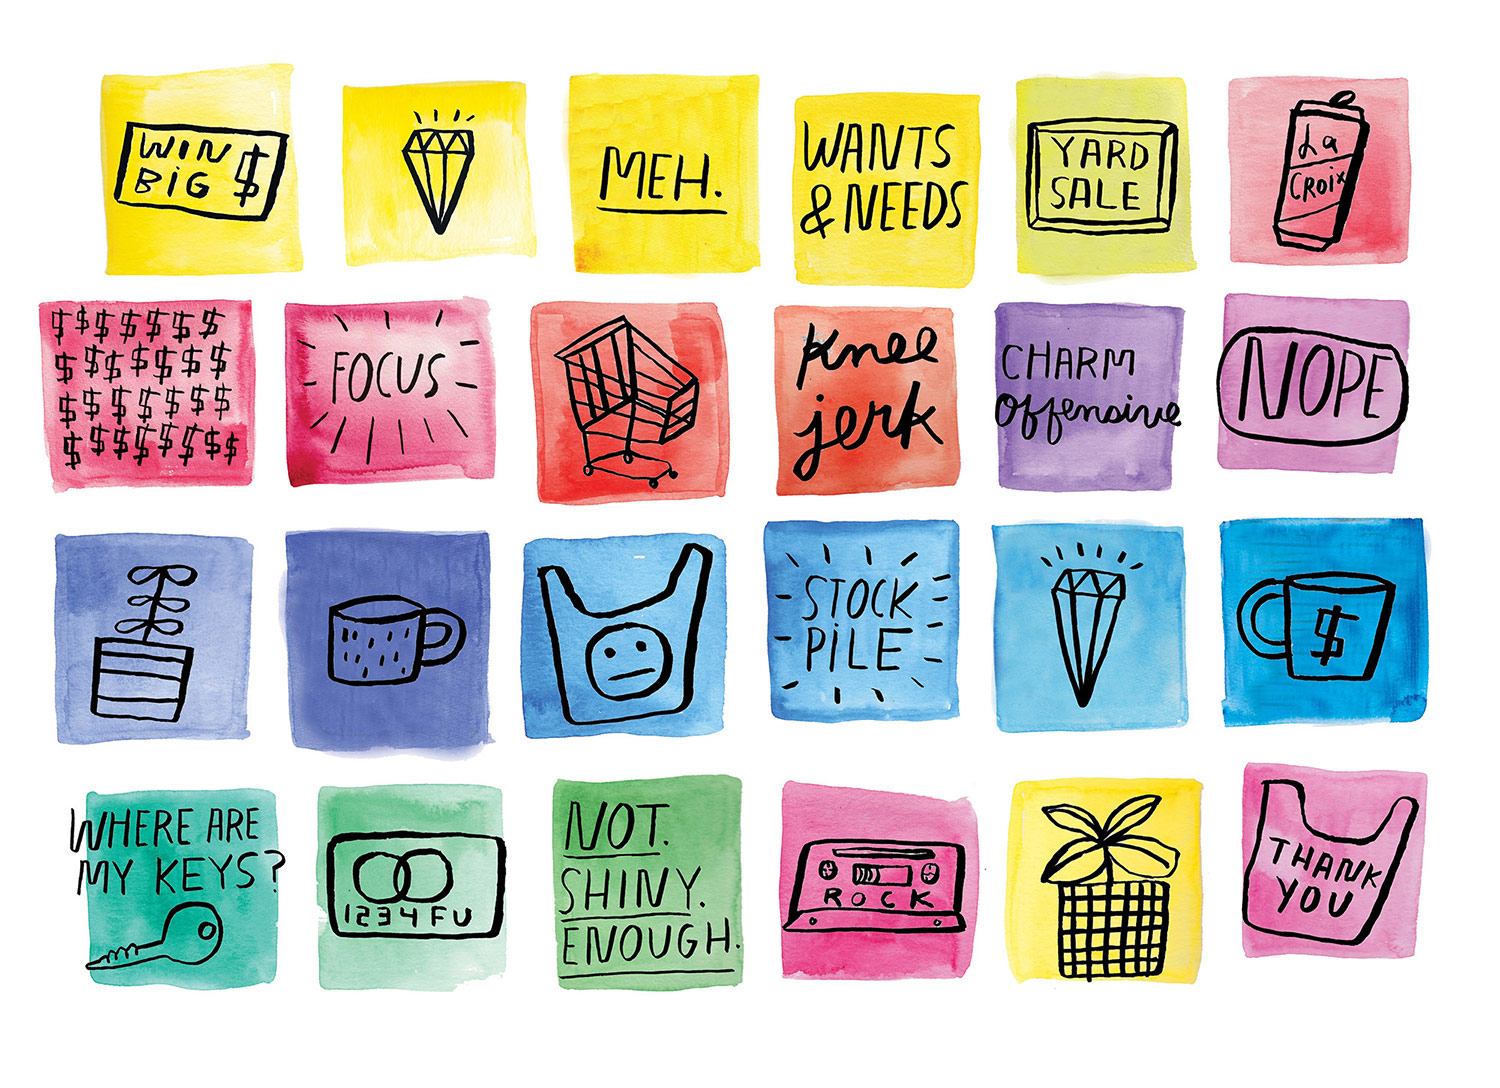 WIN
BIG $
MEH.
WANTS
& NEEDS
YARD
SALE
La
CROIX
$ $ $ $ $ $ $
$ $ $ $ $ $ $
$ $ $ $ $ $ $
$ $ $ $ $ $ $ $
FOCUS
knee
jerk
CHARM
offensive
NOPE
STOCK
PILE
$
WHERE ARE
MY KEYS?
1234 FU
NOT.
SHINY.
ENOUGH.
ROCK
THANK
YOU